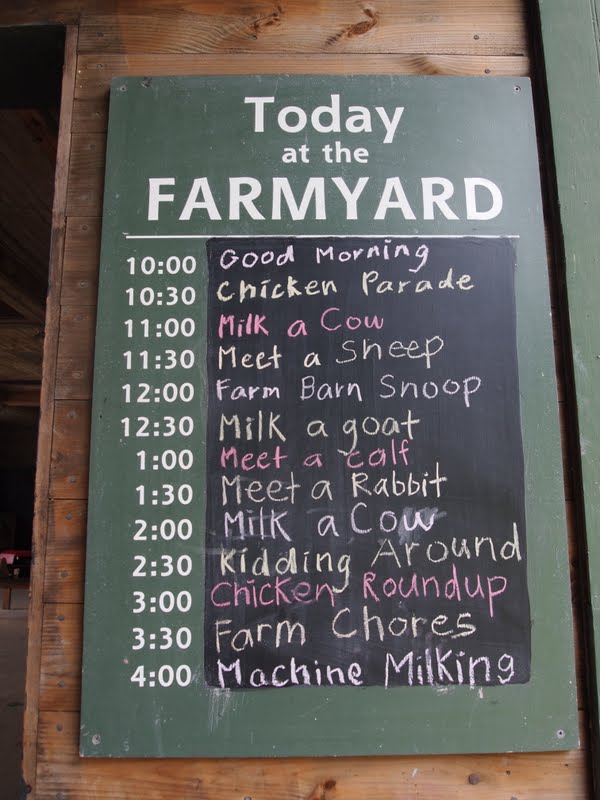 Today
at the
FARMYARD
10:00 Good Morning
10:30 Chicken Parade
11:00 Milk a Cow
11:30 Meet a Sheep
12:00 Farm Barn Snoop
12:30 Milk a goat
1:00 Meet a calf
1:30 Meet a Rabbit
2:00 Milk a Cow
2:30 Kidding Around
3:00 Chicken Roundup
3:30 Farm Chores
4:00 Machine Milking